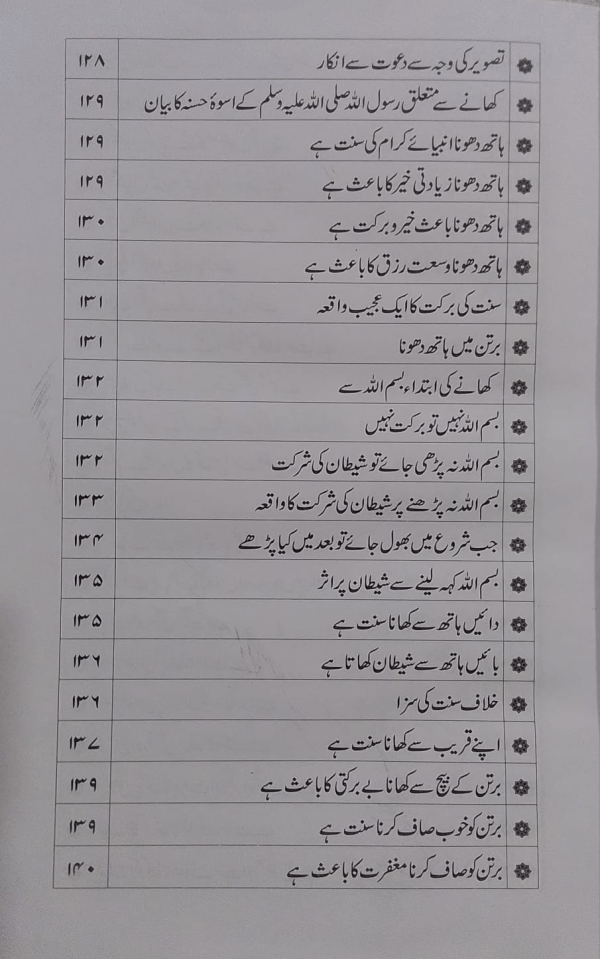 تصویر کی وجہ سے دعوت سے انکار ۱۲۸
کھانے سے متعلق رسول اللہ صلی اللہ علیہ وسلم کے اسوۂ حسنہ کا بیان ۱۲۹
ہاتھ دھونا انبیائے کرام کی سنت ہے ۱۲۹
ہاتھ دھونا زیادتی خیر کا باعث ہے ۱۲۹
ہاتھ دھونا باعث خیر و برکت ہے ۱۳۰
ہاتھ دھونا وسعت رزق کا باعث ہے ۱۳۰
سنت کی برکت کا ایک عجیب واقعہ ۱۳۱
برتن میں ہاتھ دھونا ۱۳۱
کھانے کی ابتداء بسم اللہ سے ۱۳۲
بسم اللہ نہیں تو برکت نہیں ۱۳۲
بسم اللہ نہ پڑھی جائے تو شیطان کی شرکت ۱۳۲
بسم اللہ نہ پڑھنے پر شیطان کی شرکت کا واقعہ ۱۳۳
جب شروع میں بھول جائے تو بعد میں کیا پڑھے ۱۳۴
بسم اللہ کہہ لینے سے شیطان پر اثر ۱۳۵
دائیں ہاتھ سے کھانا سنت ہے ۱۳۵
بائیں ہاتھ سے شیطان کھاتا ہے ۱۳۶
خلاف سنت کی سزا ۱۳۶
اپنے قریب سے کھانا سنت ہے ۱۳۷
برتن کے بیچ سے کھانا بے برکتی کا باعث ہے ۱۳۹
برتن کو خوب صاف کرنا سنت ہے ۱۳۹
برتن کو صاف کرنا مغفرت کا باعث ہے ۱۴۰